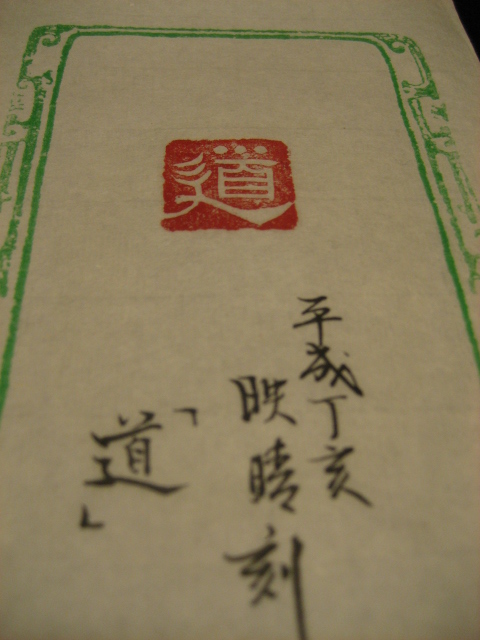 道
平成丁亥
映晴刻
「道」